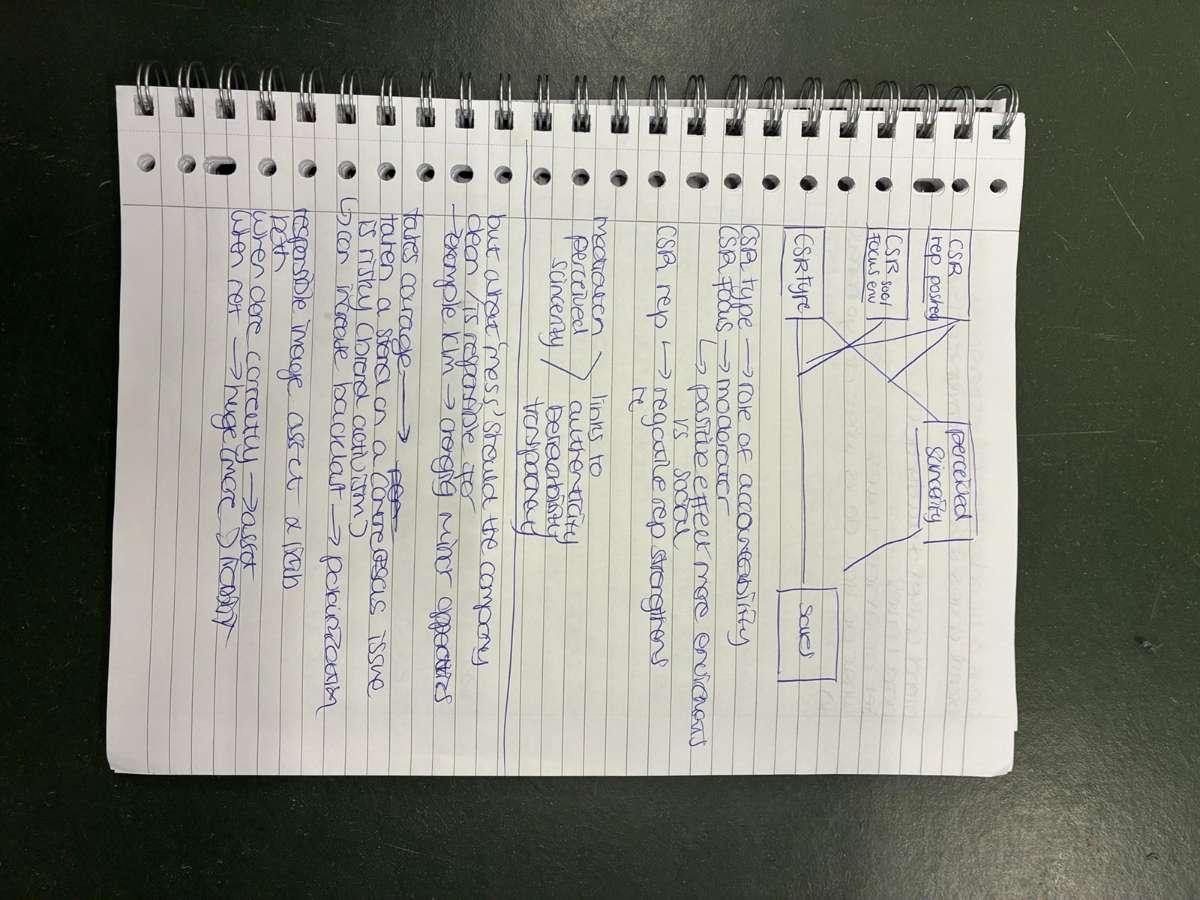 CSR
rep pos
CSR soci
focus env
CSR type
perceived
sincerity
sales
CSR type → role of accountability
CSR focus → moderator
↳ positive effect more
vs social
CSR rep ↳ → negative rep strengthens
re
mediation > links to
perceived authenticity
scincerity
transparency
but what 'mess' should the company
clean / is responsible for
→ example klm → creating minor
takes courage →
taken a stand on a issue
is risky (brand activism)
↳ can increase backlash → polarization
responsible image asset & liab
both
when done correctly → asset
when not → huge (more) liability